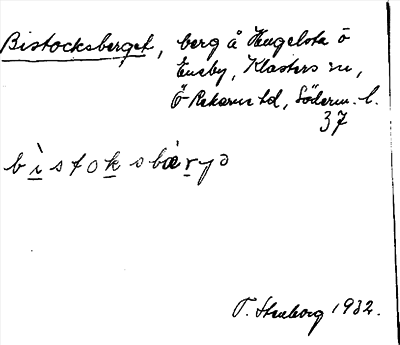 Bistocksberget, berg å Hugelsta ö
Eneby, Klosters sn,
Ö Rekarne hd, Söderm. l.
37
bìstoksbærγə
T. Stenborg 1932.